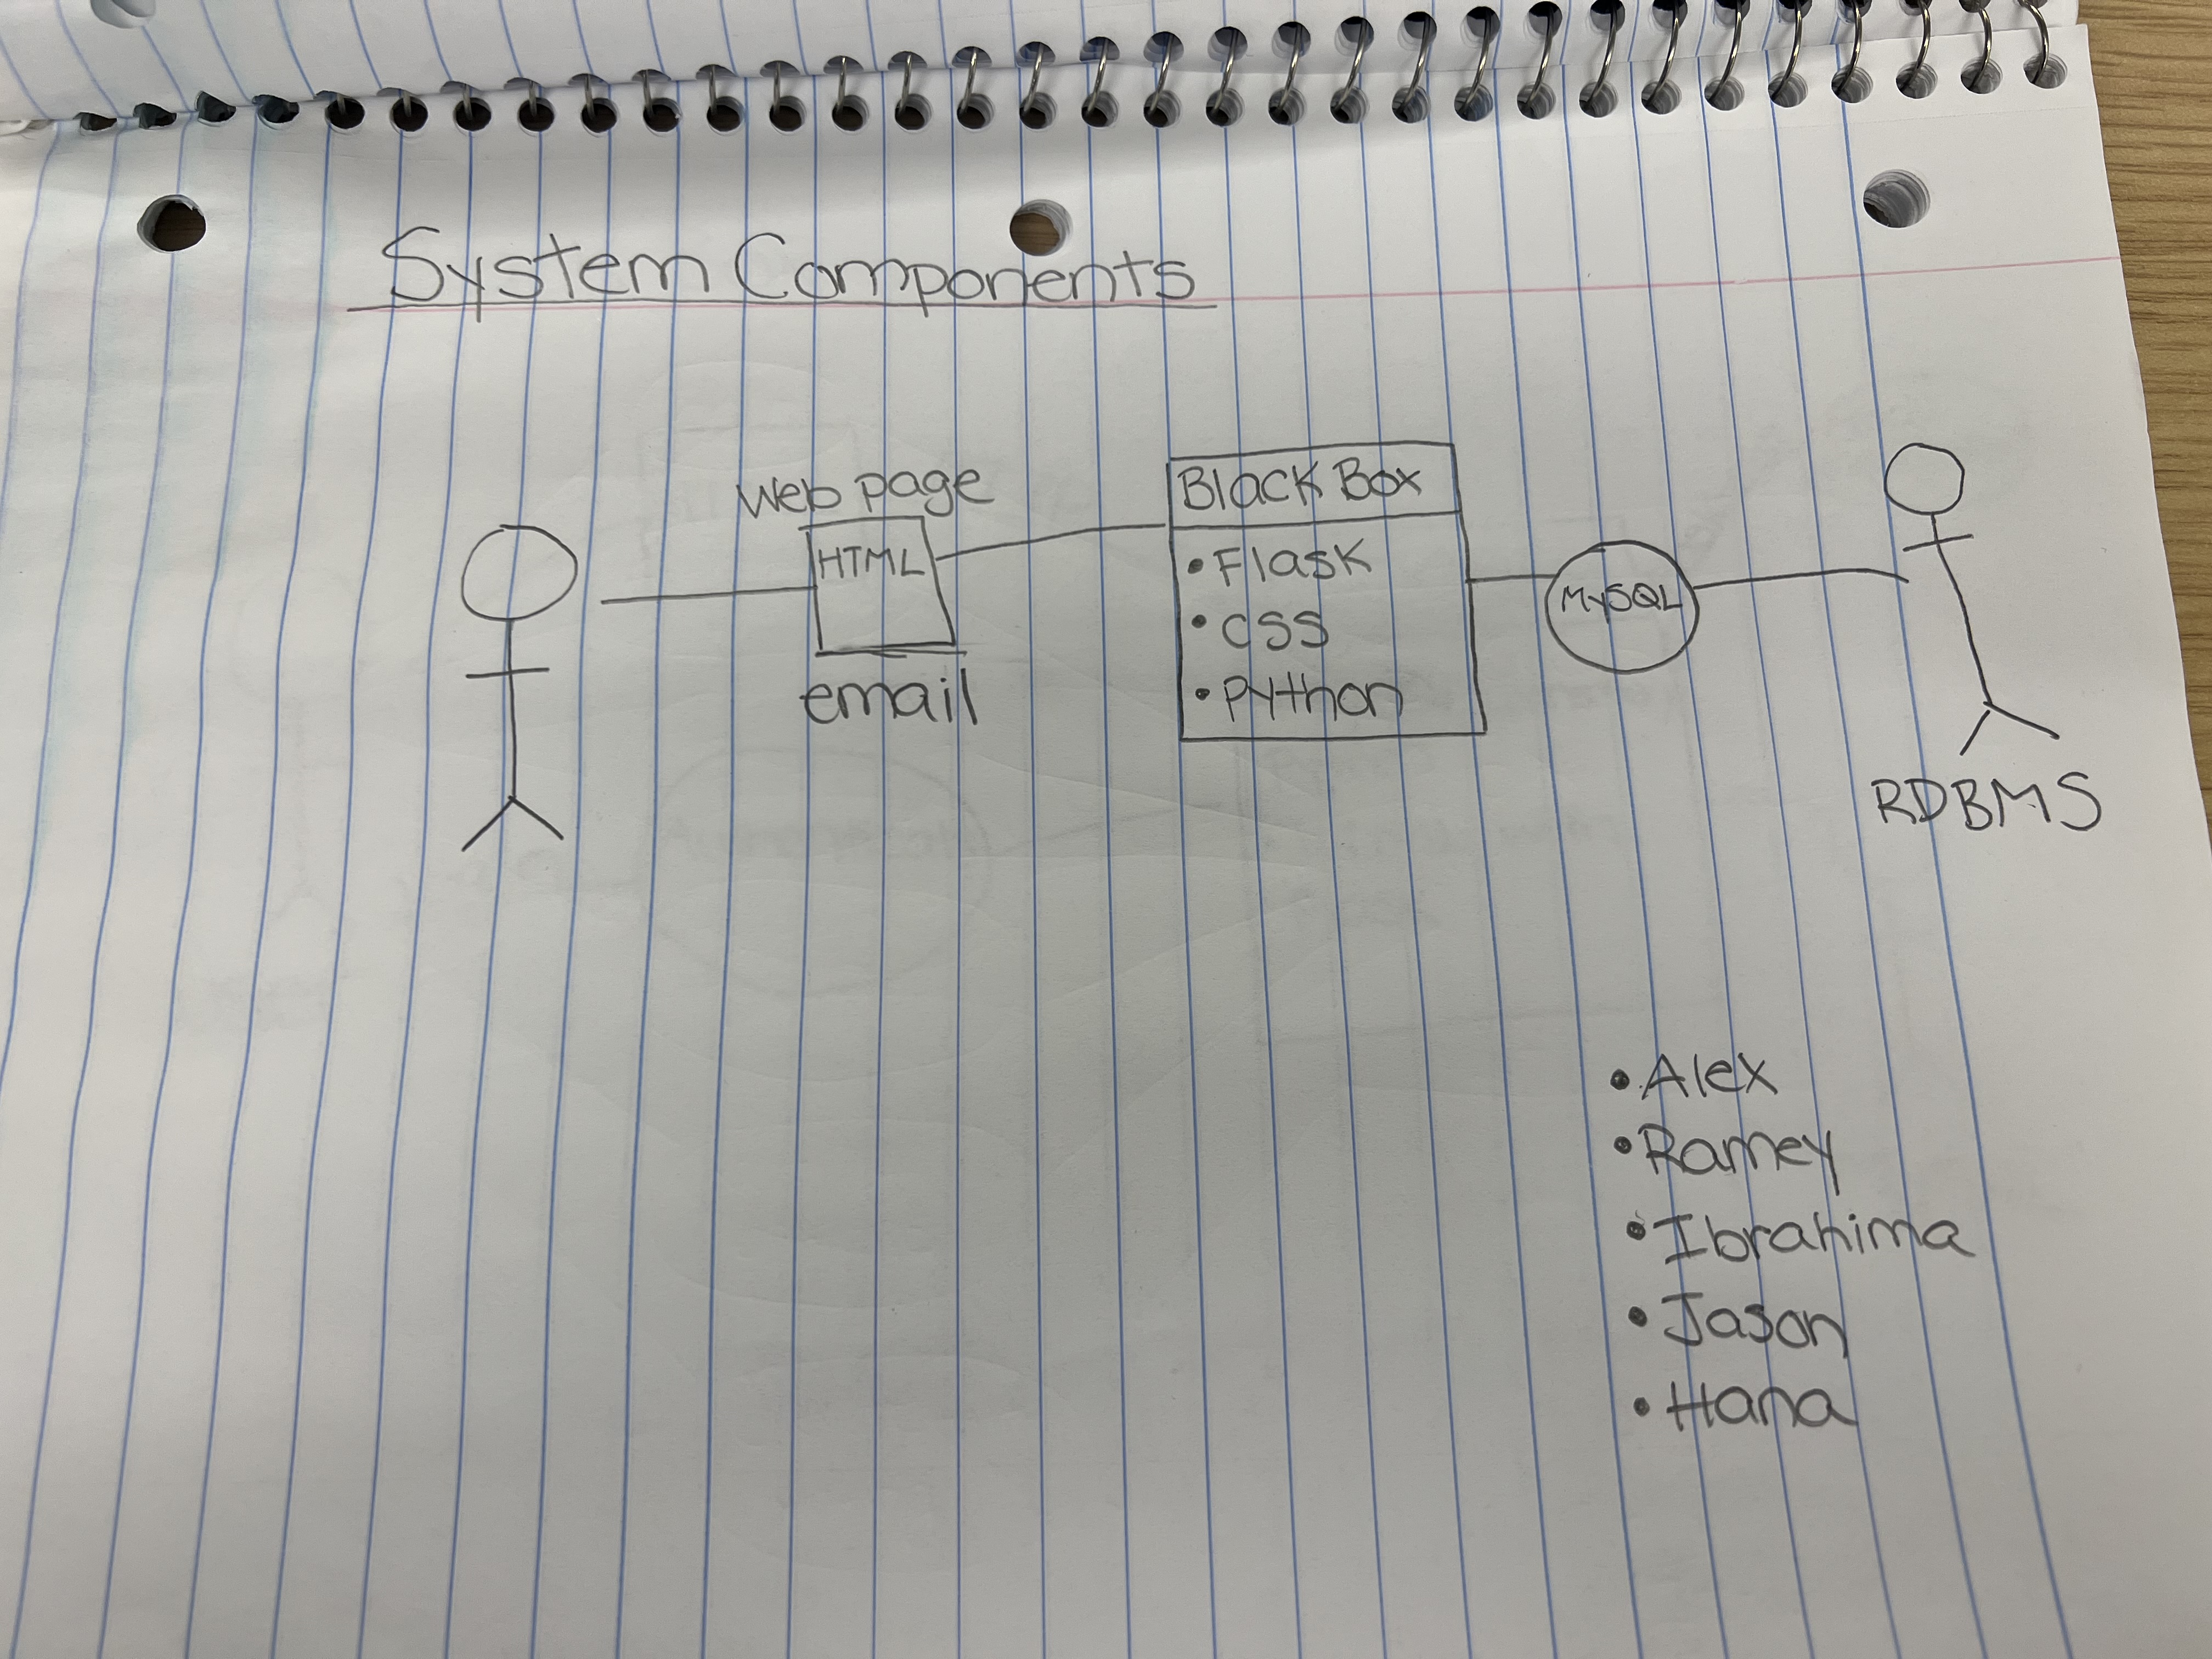 System Components
Web page
HTML
email
Black Box
• Flask
• CSS
• Python
MySQL
RDBMS
• Alex
• Ramey
• Ibrahima
• Jason
• Hana